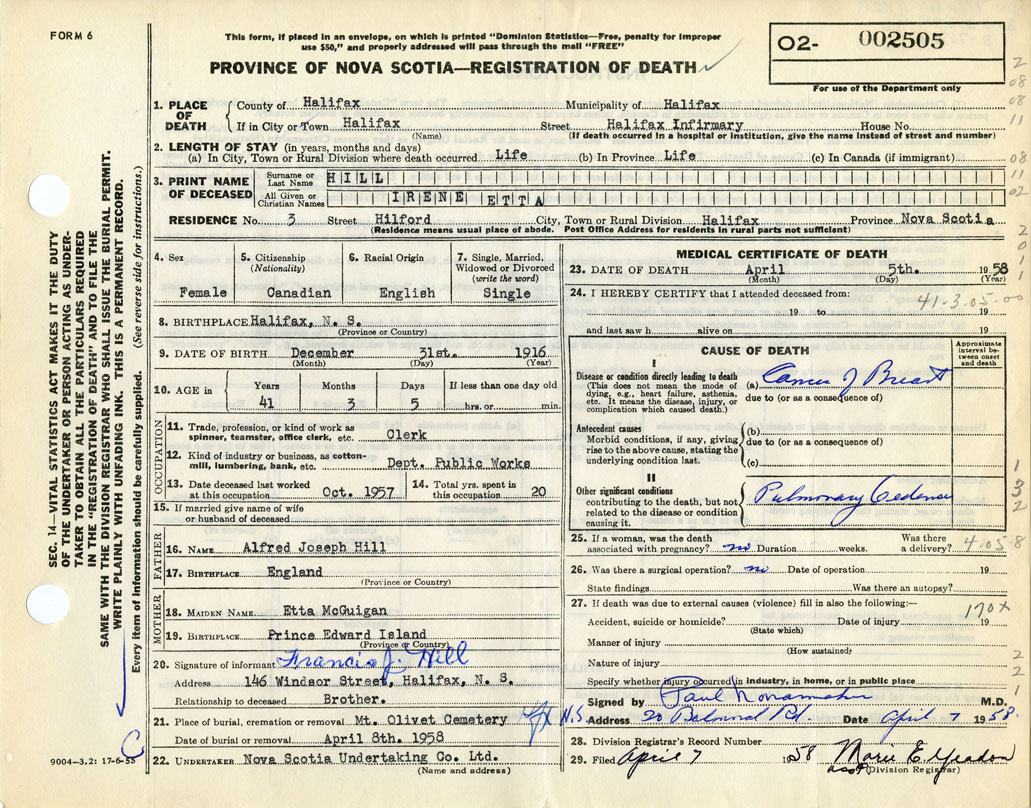 FORM 6
This form, if placed in an envelope, on which is printed "Dominion Statistics—Free, penalty for improper
use $50," and properly addressed will pass through the mail "FREE"
PROVINCE OF NOVA SCOTIA—REGISTRATION OF DEATH
O2- 002505
For use of the Department only
SEC. 14—VITAL STATISTICS ACT MAKES IT THE DUTY
OF THE UNDERTAKER OR PERSON ACTING AS UNDER-
TAKER TO OBTAIN ALL THE PARTICULARS REQUIRED
IN THE "REGISTRATION OF DEATH" AND TO FILE THE
SAME WITH THE DIVISION REGISTRAR WHO SHALL ISSUE THE BURIAL PERMIT.
WRITE PLAINLY WITH UNFADING INK. THIS IS A PERMANENT RECORD.
Every item of Information should be carefully supplied. (See reverse side for instructions.)
1. PLACE OF DEATH
County of Halifax Municipality of Halifax
If in City or Town Halifax Street Halifax Infirmary House No.
(Name) (If death occurred in a hospital or institution, give the name instead of street and number)
2. LENGTH OF STAY (in years, months and days)
(a) In City, Town or Rural Division where death occurred Life (b) In Province Life (c) In Canada (if immigrant)
3. PRINT NAME OF DECEASED
Surname or Last Name HILL
All Given or Christian Names IRENE ETTA
RESIDENCE No. 3 Street Hilford City, Town or Rural Division Halifax Province Nova Scotia
(Residence means usual place of abode. Post Office Address for residents in rural parts not sufficient)
4. Sex
Female
5. Citizenship (Nationality)
Canadian
6. Racial Origin
English
7. Single, Married, Widowed or Divorced (write the word)
Single
8. BIRTHPLACE Halifax, N. S.
(Province or Country)
9. DATE OF BIRTH December 31st. 1916
(Month) (Day) (Year)
10. AGE in Years Months Days If less than one day old
41 3 5 hrs. or min.
OCCUPATION
11. Trade, profession, or kind of work as
spinner, teamster, office clerk, etc. Clerk
12. Kind of industry or business, as cotton-
mill, lumbering, bank, etc. Dept. Public Works
13. Date deceased last worked
at this occupation Oct. 1957
14. Total yrs. spent in
this occupation 20
15. If married give name of wife
or husband of deceased
FATHER
16. NAME Alfred Joseph Hill
17. BIRTHPLACE England
(Province or Country)
MOTHER
18. MAIDEN NAME Etta McGuigan
19. BIRTHPLACE Prince Edward Island
(Province or Country)
20. Signature of informant Francis J. Hill
Address 146 Windsor Street, Halifax, N. S.
Relationship to deceased Brother.
21. Place of burial, cremation or removal Mt. Olivet Cemetery Hfx N.S.
Date of burial or removal April 8th. 1958
22. UNDERTAKER Nova Scotia Undertaking Co. Ltd.
(Name and address)
9004—3.2: 17-6-55
MEDICAL CERTIFICATE OF DEATH
23. DATE OF DEATH April 5th. 1958
(Month) (Day) (Year)
24. I HEREBY CERTIFY that I attended deceased from:
41-3.05-00
19 to 19
and last saw h alive on 19
CAUSE OF DEATH
Approximate interval between onset and death
I
Disease or condition directly leading to death
(This does not mean the mode of
dying, e.g., heart failure, asthenia,
etc. It means the disease, injury, or
complication which caused death.)
(a) Cancer of Breast
due to (or as a consequence of)
Antecedent causes
Morbid conditions, if any, giving
rise to the above cause, stating the
underlying condition last.
(b)
due to (or as a consequence of)
(c)
II
Other significant conditions
contributing to the death, but not
related to the disease or condition
causing it.
Pulmonary Oedema
25. If a woman, was the death
associated with pregnancy? no Duration weeks. Was there
a delivery?
4.05.8
26. Was there a surgical operation? no Date of operation 19
State findings Was there an autopsy?
27. If death was due to external causes (violence) fill in also the following:—
170x
Accident, suicide or homicide? Date of injury 19
(State which)
Manner of injury
(How sustained)
Nature of injury
Specify whether injury occurred in industry, in home, or in public place
Signed by Paul M.D.
Address 20 Balmoral Rd. Date April 7 1958.
28. Division Registrar's Record Number
29. Filed April 7 1958 Marie E. Yeadon
asst (Division Registrar)